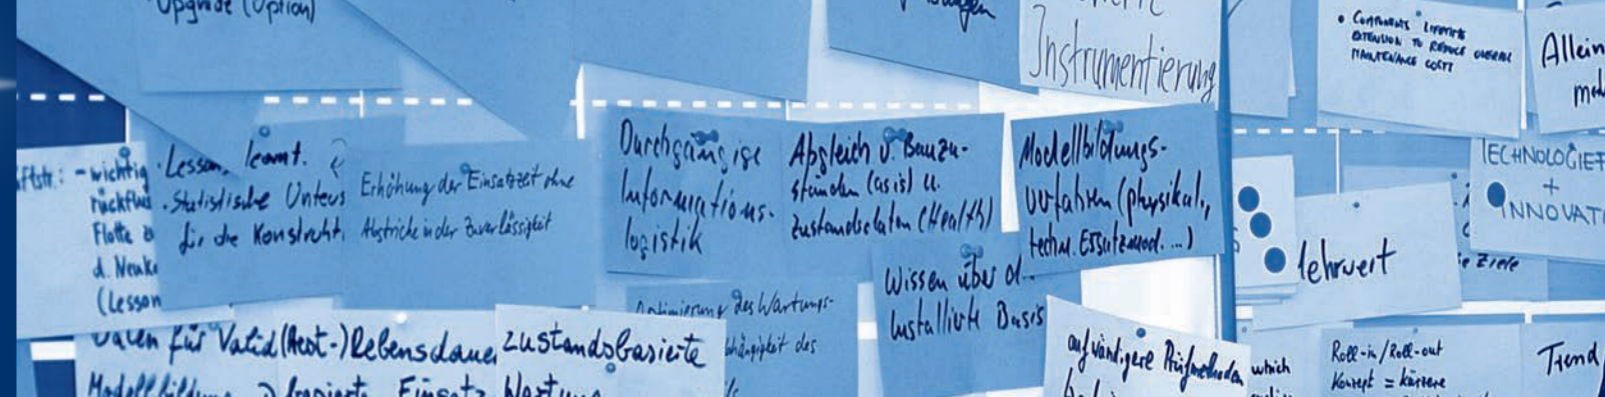 Upgrade (Option)
Instrumentierung
• COMPONENTS LIFETIME
EXTENSION TO REDUCE OVERALL
MAINTENANCE COST
Allein
- wichtig
rückflus
Flotte
d. Neuk
(Lesson
• Lesson learnt.
• Statistische Unters
für die Konstrukt.
Erhöhung der Einsatzzeit ohne
Abstriche in der Zuverlässigkeit
Durchgängige
Informations-
logistik
Abgleich v. Bauzu-
ständen (as is) u.
Zustandsdaten (Health)
Modellbildungs-
verfahren (physikal.,
techn. Ersatzmod. ...)
TECHNOLOGIEF
+
INNOVAT
Mehrwert
e Ziele
Wissen über d.
Installierte Basis
Optimierung des Wartungs-
bhängigkeit des
Daten für Valid (Rest-) Lebensdauer
Modellbildung basierte Einsatz
Zustandsbasierte
Wartung
aufwändigere Prüfmethoden
which
Roll-in/Roll-out
Konzept = kürzere
Trend